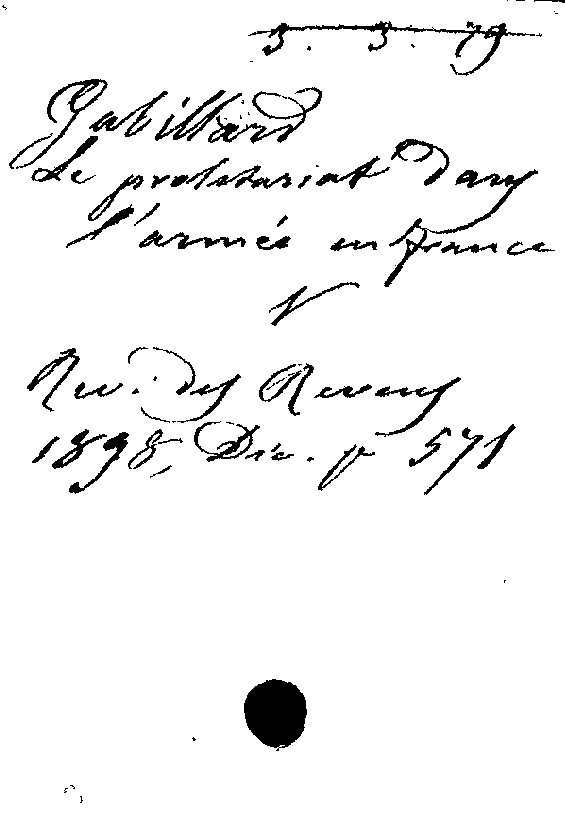 3. 3. 79
Gabillard
Le proletariat dans
l'armée en France
Rev. des Revues
1898, Déc. p 571